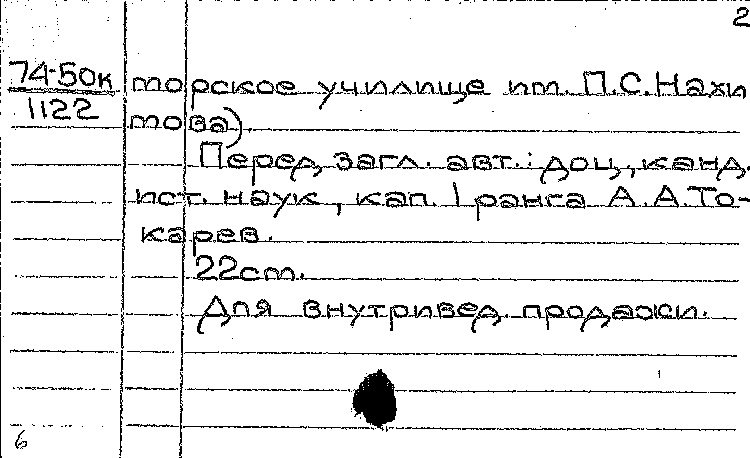 2
74-50к
1122
торское училище им. П.С.Нахи
това).
Перед загл. авт.: доц., канд.
ист. наук, кап. 1 ранга А.А.То-
карев.
22cm.
Для внутривед. продажи.
6